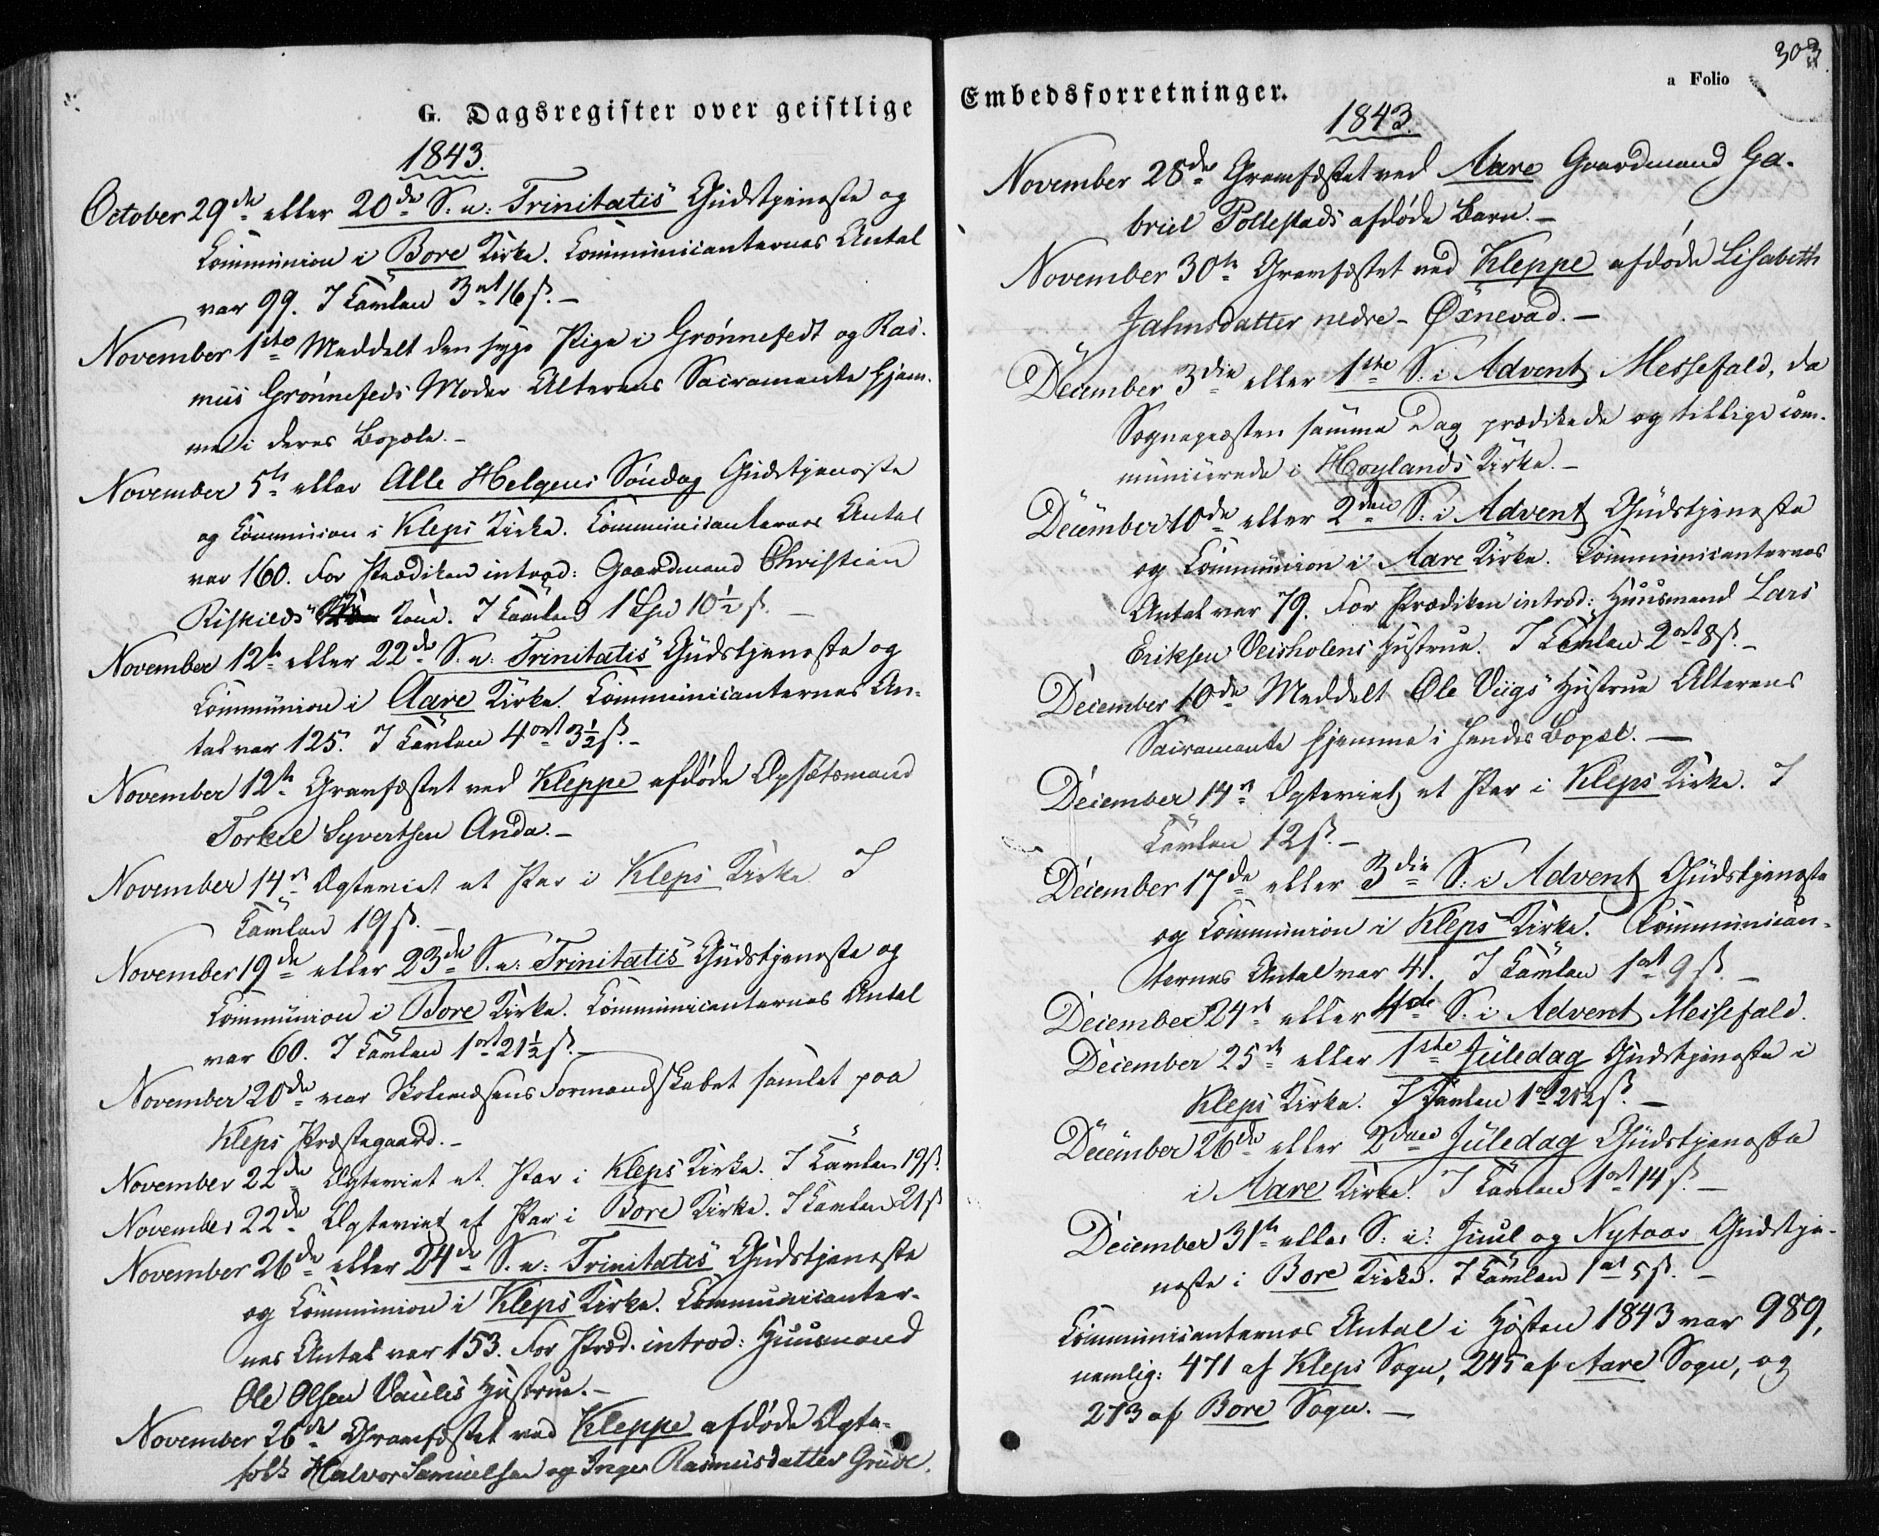 G. Dagsregister over geistlige
1843.
October 29de eller 20de S. e: Trinitatis Gudstjeneste og
Communion i Bore Kirke. Communicanternes Antal
var 99. I Tavlen 3 ort 16 ß. –
November 1ste Meddelt den syge Pige i Grønnefedt og Ras-
mus Grønnefeds Moder Alterens Sacramente hjem-
me i deres Bopæle. –
November 5te eller Alle Helgens Søndag Gudstjeneste
og Communion i Kleps Kirke. Communicanternes Antal
var 160. For Prædiken introd: Gaardmand Christian
Riskields Kone. I Tavlen 1 Spd 10½ ß. –
November 12te eller 22de S. e. Trinitatis Gudstjeneste og
Communion i Aare Kirke. Communicanternes An-
tal var 125. I Tavlen 4 ort 3½ ß. –
November 12te Gravfæstet ved Kleppe afdøde Opsætsmand
Torkel Syvertsen Anda. –
November 14de Ægteviet et Par i Kleps Kirke I
Tavlen 19 ß. –
November 19de eller 23de S. e: Trinitatis Gudstjeneste og
Communion i Bore Kirke. Communicanternes Antal
var 60. I Tavlen 1 ort 21½ ß. –
November 20de var Skolevæsens Formandskabet samlet paa
Kleps Præstegaard. –
November 22de Ægteviet et Par i Kleps Kirke. I Tavlen 19 ß.
November 22de Ægteviet et Par i Bore Kirke. I Tavlen 21 ß
November 26de eller 24de S. e: Trinitatis Gudstjeneste
og Communion i Kleps Kirke. Communicanter-
nes Antal var 153. For Præd. introd: Huusmand
Ole Olsen Vaulis Hustrue. –
November 26de Gravfæstet ved Kleppe afdøde Ægte-
folk Halvor Samuelsen og Inger Rasmusdatter Grude.
Embedsforretninger.
a Folio
303
1843.
November 28de Gravfæstet ved Aare Gaardmand Ga-
briel Pollestads afdøde Barn. –
November 30te Gravfæstet ved Kleppe afdøde Lisabeth
Jahnsdatter nedre – Øxnevad. –
December 3die eller 1ste S. i Advent Messefald, da
Sognepræsten samme Dag prædikede og tillige com-
municerede i Høylands Kirke. –
December 10de eller 2den S: i Advent Gudstjeneste
og Communion i Aare Kirke. Communicanternes
Antal var 79. For Prædiken introd: Huusmand Lars
Eriksen Veisholens Hustrue. I Tavlen 2 ort 8 ß. –
December 10de Meddelt Ole Viigs Hustrue Alterens
Sacramente hjemme i hendes Bopæl. –
December 14de Ægteviet et Par i Kleps Kirke. I
Tavlen 12 ß. –
December 17de eller 3die S: i Advent Gudstjeneste
og Communion i Kleps Kirke. Communican-
ternes Antal var 41. I Tavlen 1 ort 9 ß. –
December 24de eller 4de S. i Advent Messefald.
December 25de eller 1ste Juledag Gudstjeneste i
Kleps Kirke. I Tavlen 1 ort ß. –
December 26de eller 2den Juledag Gudstjeneste
i Aare Kirke. I Tavlen 1 ort 14 ß. –
December 31te eller S: e: Juul og Nytaar Gudstje-
neste i Bore Kirke. I Tavlen 1 ort 5 ß. –
Communicanternes Antal i Høsten 1843 var 989,
nemlig: 471 af Kleps Sogn, 245 af Aare Sogn, og
273 af Bore Sogn. –